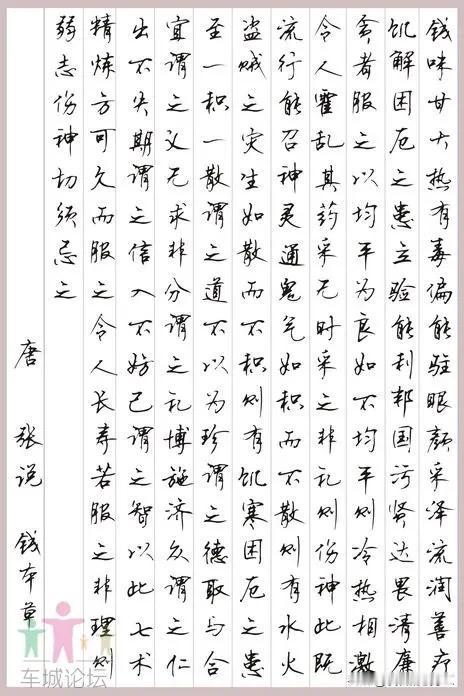 钱味甘大热有毒偏能驻眼颜采泽流润善疗
饥解困厄之患立验能利邦国污贤达畏清廉
贪者服之以均平为良如不均平则冷热相激
令人霍乱其药采无时采之非礼则伤神此既
流行能召神灵通鬼气如积而不散则有水火
盗贼之灾生如散而不积则有饥寒困厄之患
至一积一散谓之道不以为珍谓之德取与合
宜谓之义无求非分谓之礼博施济众谓之仁
出不失期谓之信入不妨己谓之智以此七术
精炼方可久而服之令人长寿若服之非理则
弱志伤神切须忌之
唐 张说 钱本草
车城论坛